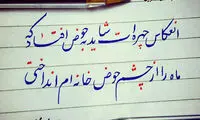 انعکاس چهره ات شاید به حوض افتاد که
ماه را از چشم حوض خانه ام انداختی